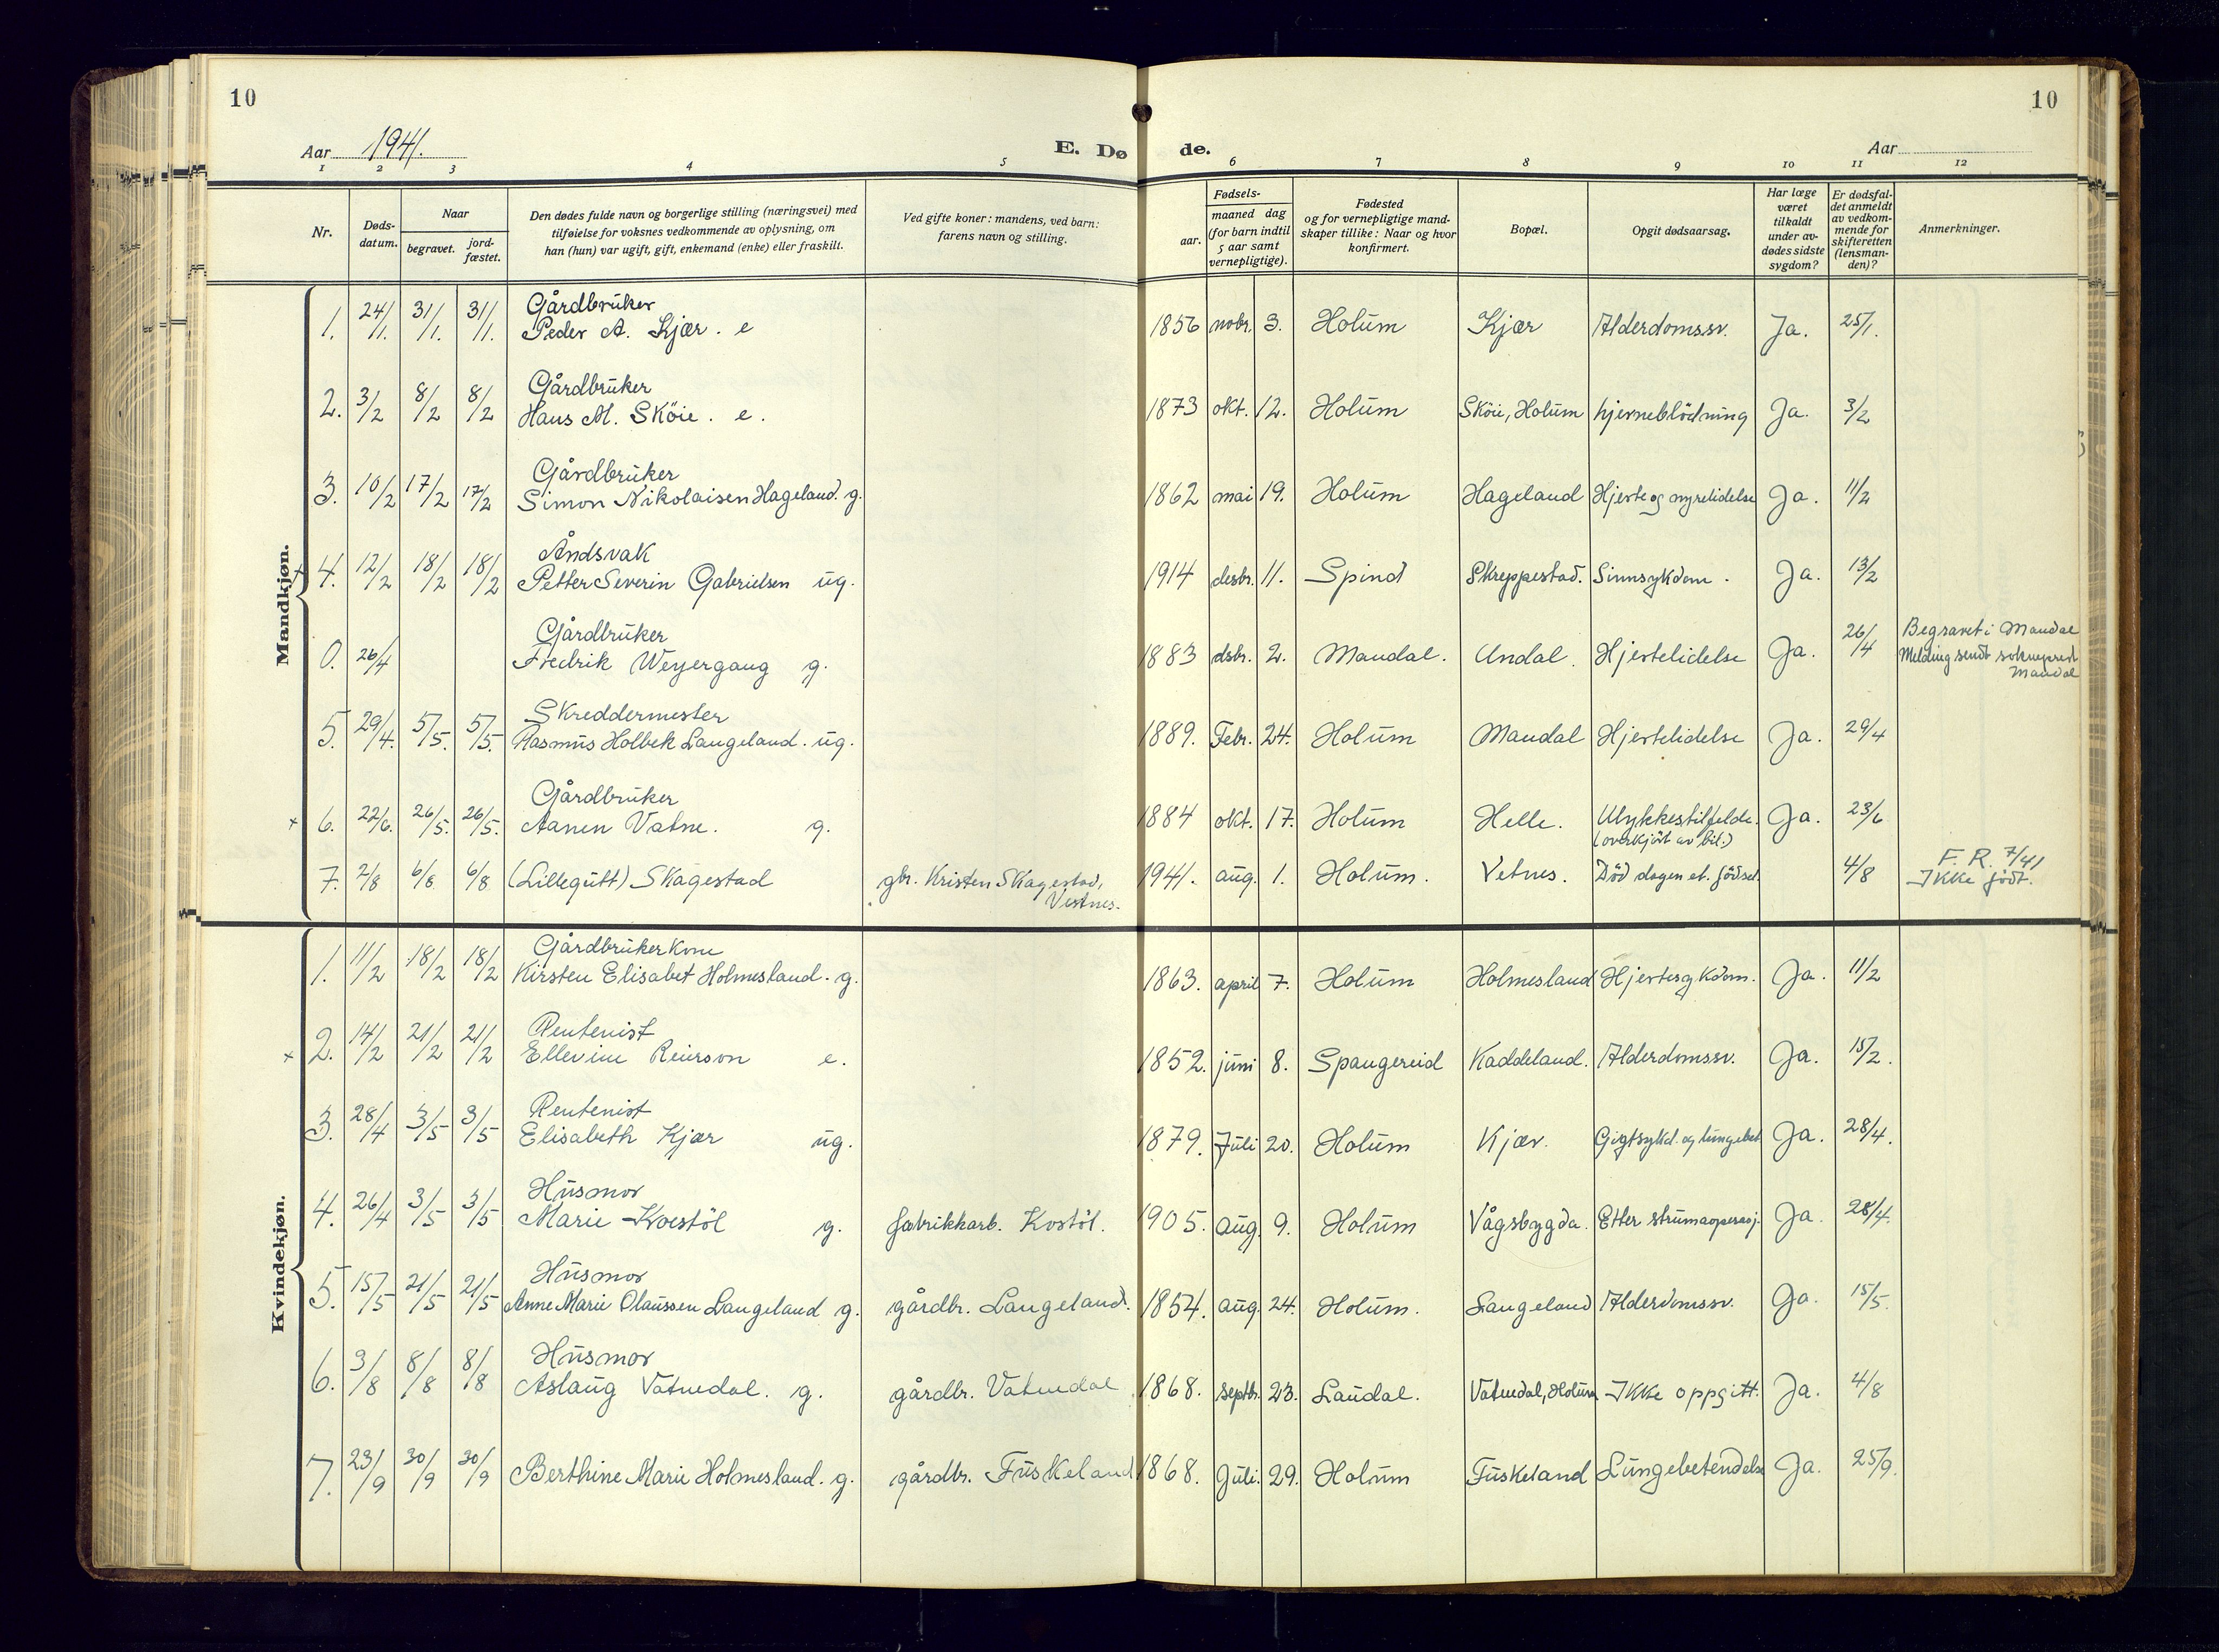 10
10
Aar 1941.
E. Dø
de.
Aar
1 2 3 4 5 6 7 8 9 10 11 12
Nr.
Døds-
datum.
Naar
begravet.
jord-
fæstet.
Den dødes fulde navn og borgerlige stilling (næringsvei) med
tilføielse for voksnes vedkommende av oplysning, om
han (hun) var ugift, gift, enkemand (enke) eller fraskilt.
Ved gifte koner: mandens, ved barn:
farens navn og stilling.
Fødsels-
aar.
maaned dag
(for barn indtil
5 aar samt
vernepligtige).
Fødested
og for vernepligtige mand-
skaper tillike: Naar og hvor
konfirmert.
Bopæl.
Opgit dødsaarsag.
Har læge
været
tilkaldt
under av-
dødes sidste
sygdom?
Er dødsfal-
det anmeldt
av vedkom-
mende for
skifteretten
(lensman-
den)?
Anmerkninger.
Mandkjøn.
Gårdbruker
1. 24/1. 31/1. 31/1. Peder A. Kjær. e 1856 nobr. 3. Holum Kjær Alderdomssv. Ja. 25/1.
Gårdbruker
2. 3/2 8/2 8/2 Hans M. Sköie. e. 1873 okt. 12. Holum Sköie, Holum hjerneblödning Ja. 3/2
Gårdbruker
3. 10/2 17/2 17/2 Simon Nikolaisen Hageland. g. 1862 mai 19. Holum Hageland Hjerte og nyrelidelse Ja. 11/2
Åndsvak
+ 4. 12/2 18/2 18/2 Petter Severin Gabrielsen ug. 1914 desbr. 11. Spind Skreppestad. Sinnsykdom. Ja. 13/2
Gårdbruker
0. 26/4 Fredrik Weyergang g. 1883 dsbr. 2. Mandal. Undal. Hjertelidelse Ja. 26/4 Begravet i Mandal
Melding sendt sokneprest
Mandal
Skreddermester
5. 29/4. 5/5. 5/5. Rasmus Holbek Langeland. ug. 1889. Febr. 24. Holum Mandal Hjertelidelse Ja. 29/4
Gårdbruker
+ 6. 22/6. 26/5. 26/5. Aanen Vatne. g. 1884 okt. 17. Holum Helle. Ulykkestilfelde. Ja. 23/6
(overkjört av bil.)
7. 2/8 6/8 6/8 (Lillegutt) Skagestad gbr. Kristen Skagestad, Vestnes. 1941. aug. 1. Holum. Vetnes. Död dagen et. födsel. 4/8 F. R. 7/41
Ikke födt.
Kvindekjøn.
Gårdbrukerkone
1. 11/2 18/2 18/2 Kirsten Elisabet Holmesland. g. 1863. april 7. Holum Holmesland Hjertesykdom. Ja. 11/2
Rentenist
+ 2. 14/2 21/2 21/2 Ellevine Reierson e. 1852. juni 8. Spangereid Kaddeland. Alderdomssv. Ja. 15/2.
Rentenist
3. 28/4 3/5 3/5 Elisabeth Kjær ug. 1879. Juli 20. Holum Kjær. Gigtsykd. og lungebet Ja. 28/4.
Husmor
4. 26/4 3/5 3/5 Marie Kvestöl g. fabrikkarb. Kostöl. 1905. aug. 9. Holum Vågsbygda. Etter strumaoperasj. Ja. 28/4.
Husmor
5. 15/5 21/5 21/5 Anne Marie Olaussen Langeland g. gårdbr. Langeland. 1854. aug. 24. Holum. Langeland Alderdomssv. Ja. 15/5.
Husmor
6. 3/8 8/8 8/8 Aslaug Vatnedal. g. gårdbr. Vatnedal 1868. septbr. 23. Laudal. Vatnedal, Holum Ikke oppgitt. Ja. 4/8
7. 23/9 30/9 30/9 Berthine Marie Holmesland. g. gårdbr. Fuskeland 1868. Juli. 29. Holum Fuskeland Lungebetendelse Ja. 25/9.